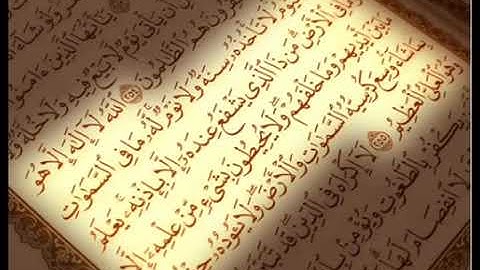 يَٰٓأَيُّهَا ٱلَّذِينَ ءَامَنُوٓا۟
أَن يَأْتِىَ يَوْمٌ لَّا بَيْعٌ فِيهِ وَلَا خُلَّةٌ
هُمُ ٱلظَّٰلِمُونَ ٢٥٤ ٱللَّهُ لَآ إِلَٰهَ إِلَّا هُوَ
لَا تَأْخُذُهُۥ سِنَةٌ وَلَا نَوْمٌ لَّهُۥ مَا فِى ٱلسَّمَٰوَٰتِ
فِى ٱلْأَرْضِ مَن ذَا ٱلَّذِى يَشْفَعُ عِندَهُۥٓ إِلَّا بِإِذْنِهِۦ يَعْلَمُ
مَا بَيْنَ أَيْدِيهِمْ وَمَا خَلْفَهُمْ وَلَا يُحِيطُونَ بِشَىْءٍ مِّنْ عِلْمِهِۦٓ إِلَّا
بِمَا شَآءَ وَسِعَ كُرْسِيُّهُ ٱلسَّمَٰوَٰتِ وَٱلْأَرْضَ وَلَا يَـُٔودُهُۥ
وَهُوَ ٱلْعَلِىُّ ٱلْعَظِيمُ ٢٥٥ لَآ إِكْرَاهَ فِى ٱلدِّينِ قَد تَّبَيَّنَ
يَكْفُرْ بِٱلطَّٰغُوتِ وَيُؤْمِنۢ
لَا ٱنفِصَامَ لَهَا